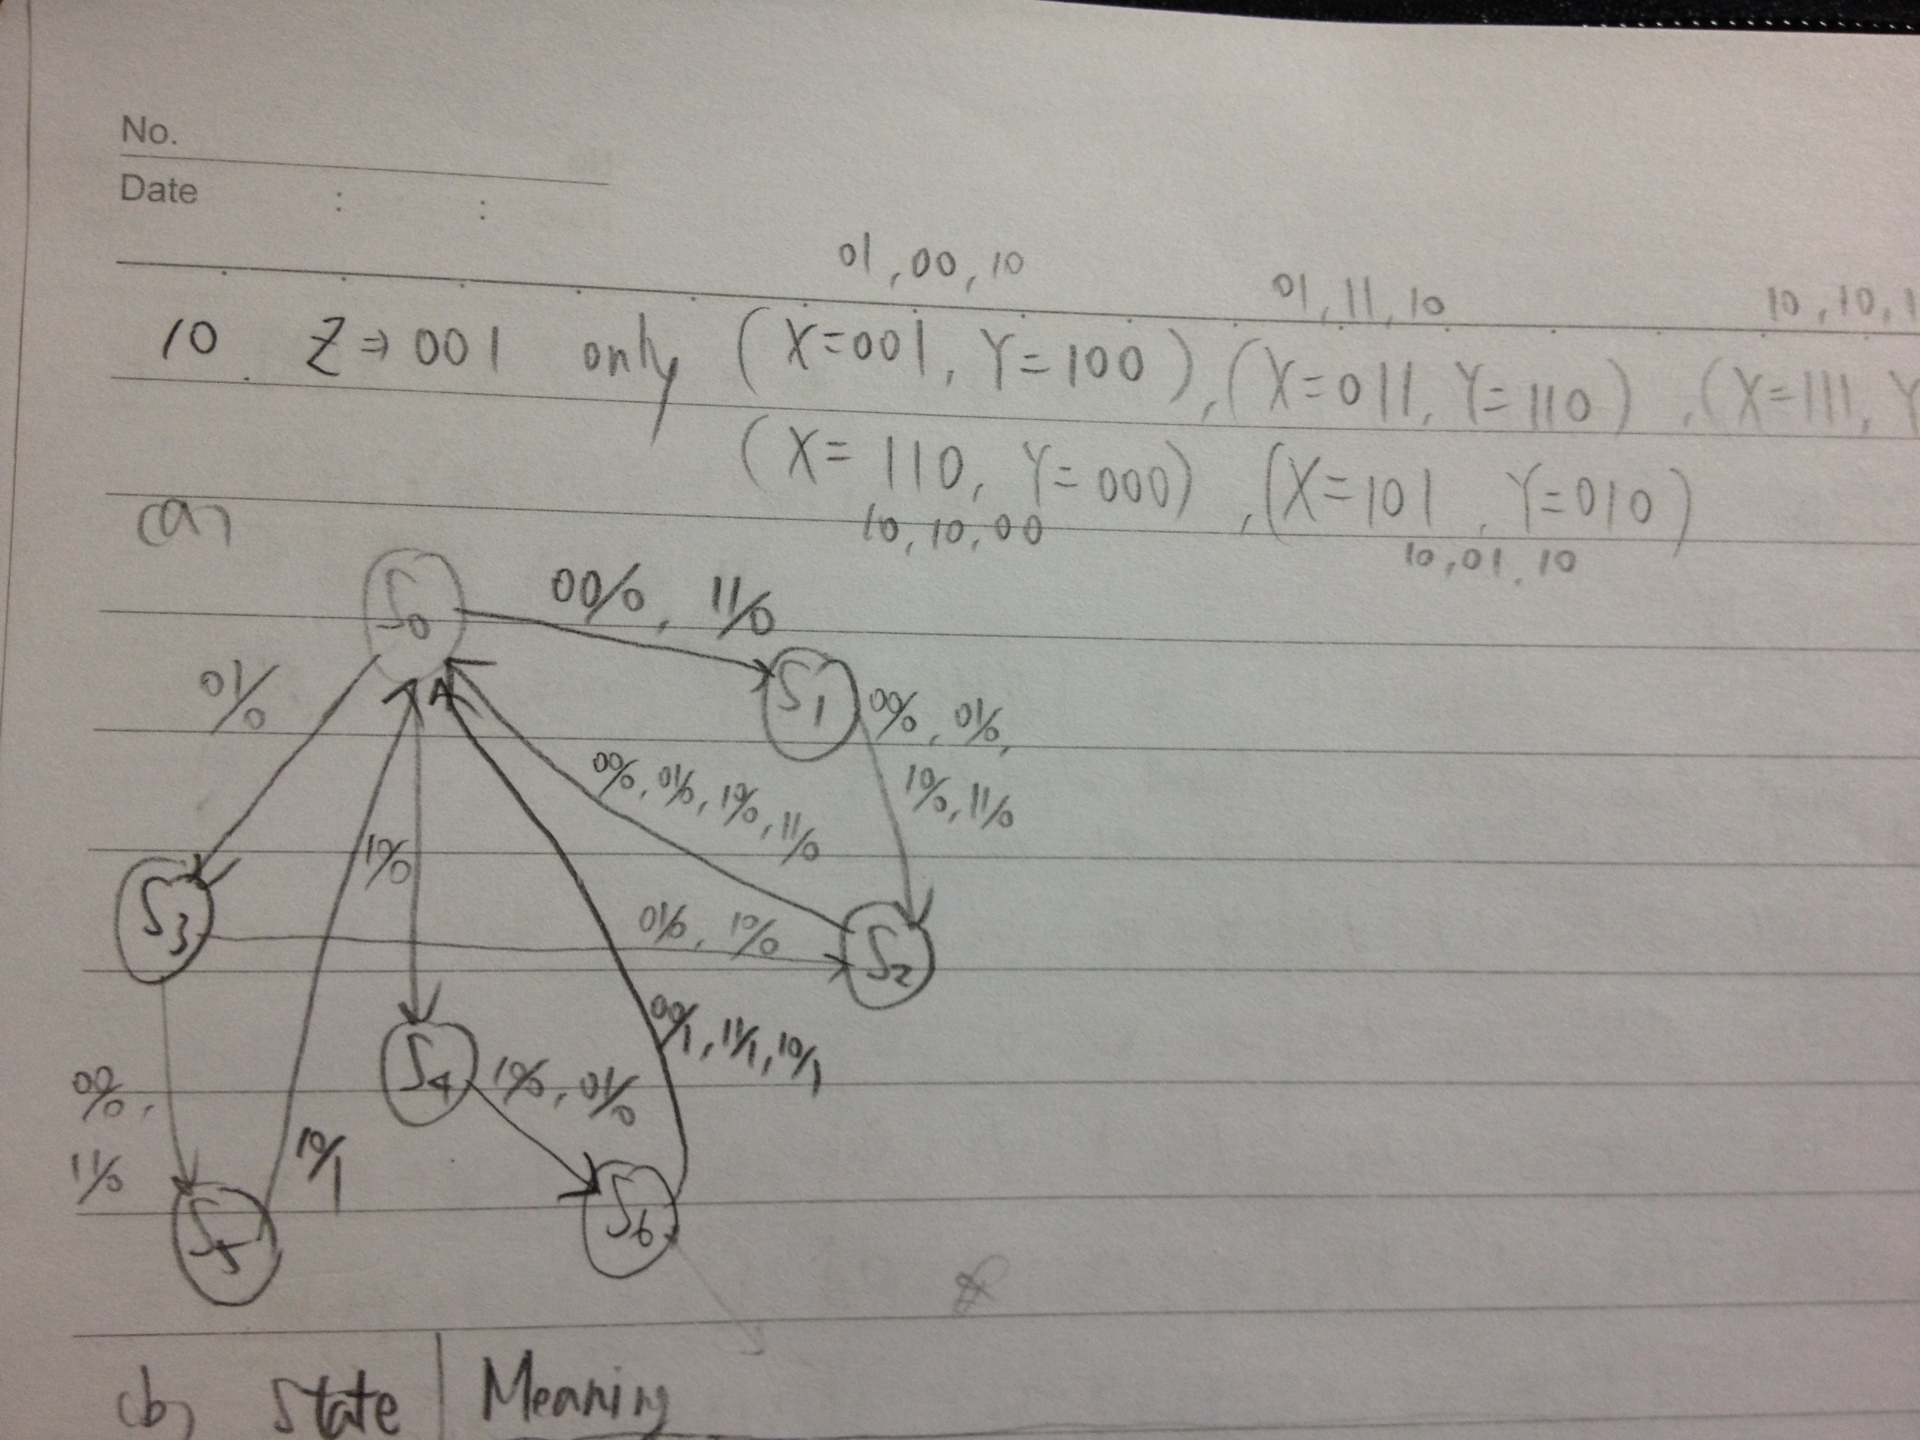 No.
Date : :
01,00,10 01,11,10 10,10,1
10. Z⇒001 only (X=001, Y=100), (X=011, Y=110), (X=111, Y
(X=110, Y=000), (X=101, Y=010)
10,10,00 10,01,10
(a)
S0 00/0, 11/0
S1
01/0
00/0, 01/0,
10/0, 11/0
00/0, 01/0, 10/0, 11/0
10/0
S3
01/0, 10/0
S2
00/1, 11/1, 10/1
S4 10/0, 01/0
00/0,
11/0
10/1
S5
S6
(b) State Meaning